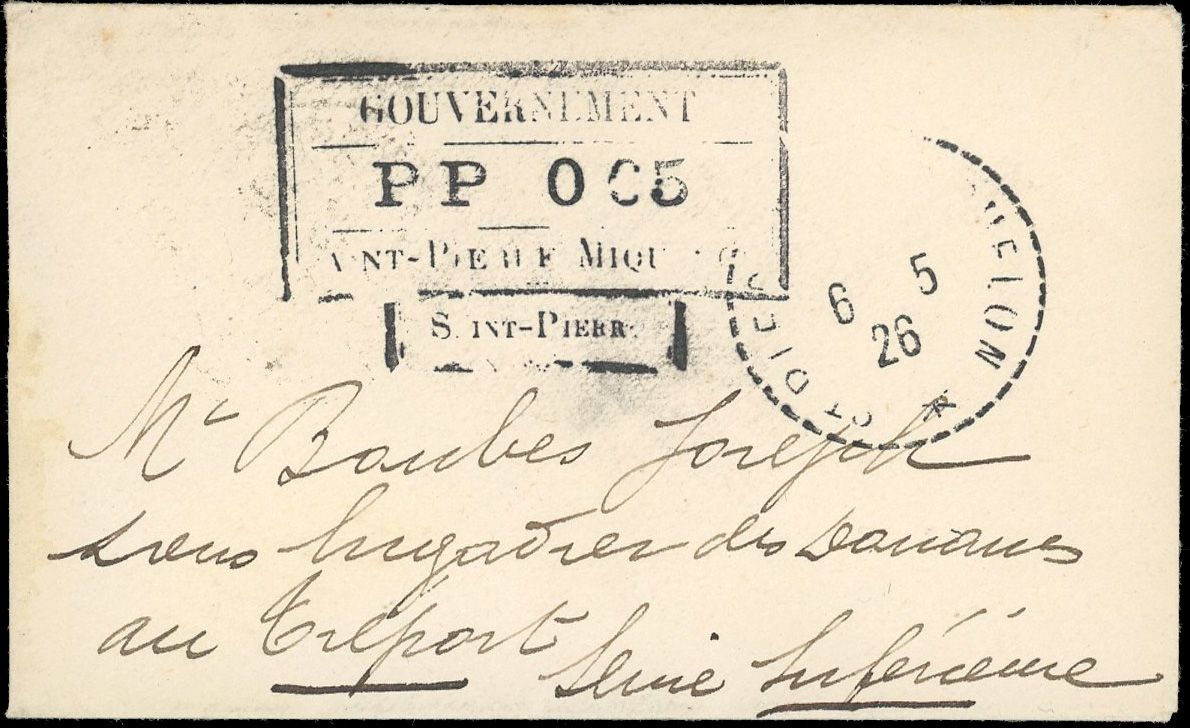 GOUVERNEMENT
PP 005
SAINT-PIERRE MIQUELON
SAINT-PIERRE
ST PIERRE MIQUELON
6 5
26
Mr Baubes Joseph
sous brigadier des Douanes
au Tréport Seine Inférieure